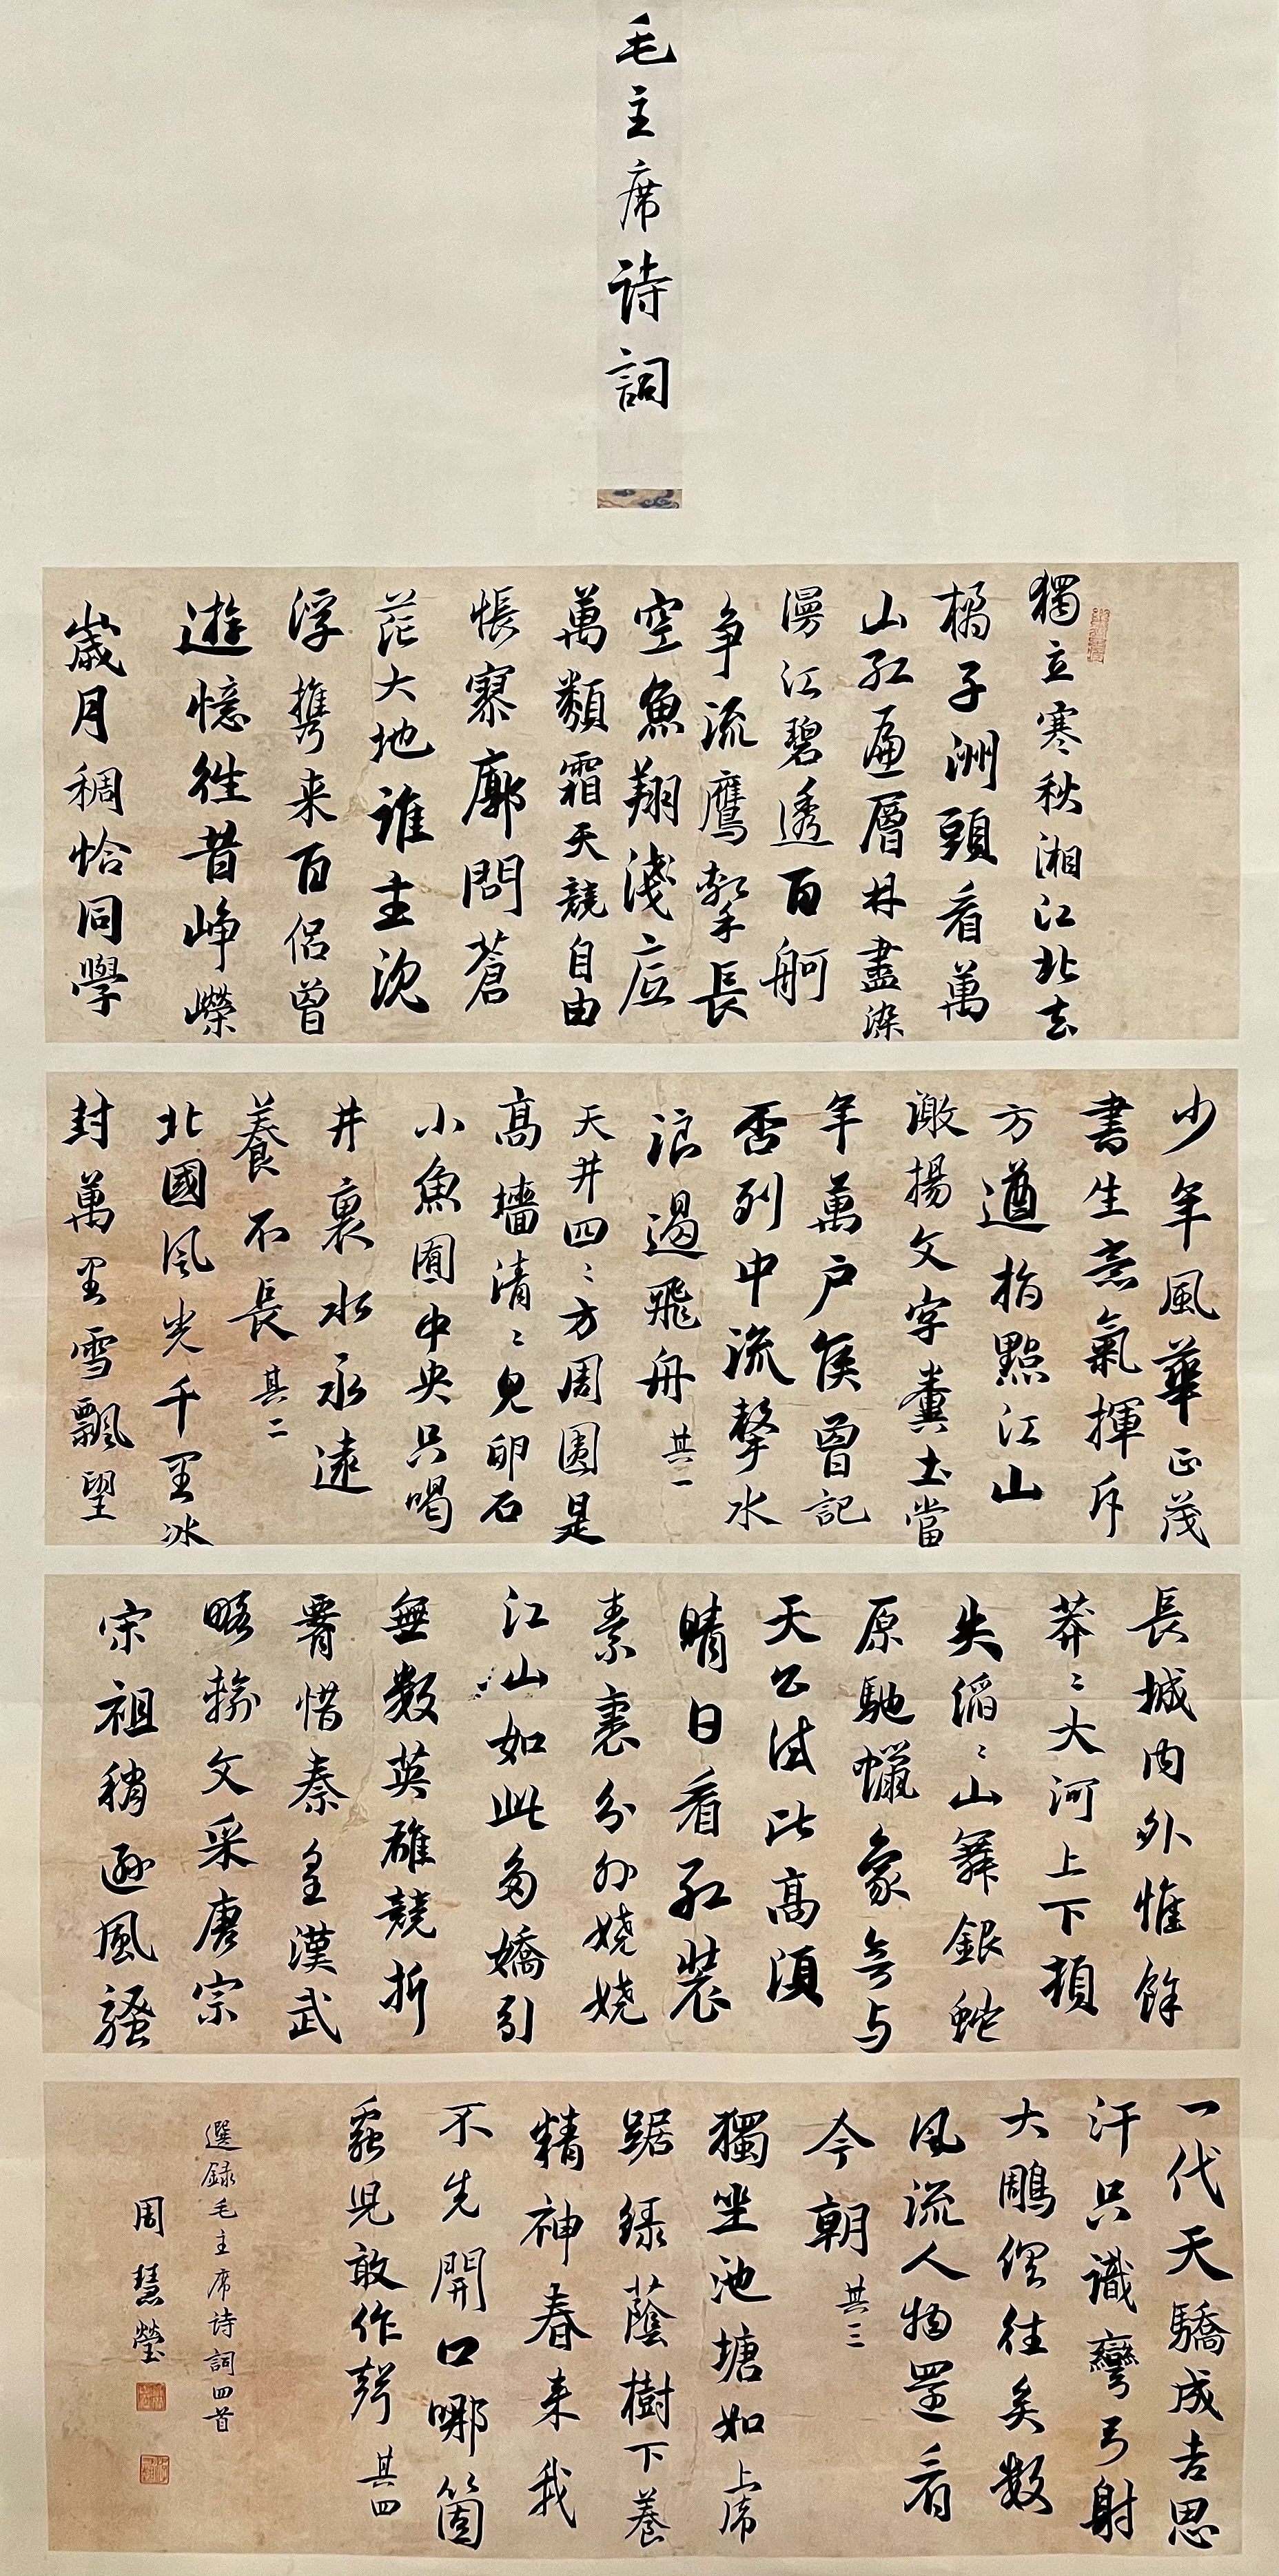 毛主席诗詞
獨立寒秋湘江北去
橘子洲頭看萬
山紅遍層林盡染
漫江碧透百舸
争流鷹擊長
空魚翔淺底
萬類霜天競自由
悵寥廓問蒼
茫大地誰主沈
浮攜来百侣曾
遊憶往昔崢嶸
歲月稠恰同學
少年風華正茂
書生意氣揮斥
方遒指點江山
激揚文字糞土當
年萬户侯曾記
否列中流擊水
浪遏飛舟 其一
天井四〻方周圍是
高墻清〻見卵石
小魚囿中央只喝
井裏水永遠
養不長 其二
北國風光千里冰
封萬里雪飄望
長城内外惟餘
莽〻大河上下頓
失滔〻山舞銀蛇
原馳蠟象欲与
天公试比高須
晴日看紅裝
素裹分外嬈嬈
江山如此多嬌引
無數英雄競折
腰惜秦皇漢武
略輸文采唐宗
宋祖稍遜風騷
一代天驕成吉思
汗只識彎弓射
大鵰俱往矣數
風流人物還看
今朝 其三
獨坐池塘如上席
踞緑蔭樹下養
精神春来我
不先開口哪箇
蟲児敢作聲 其四
選録毛主席诗詞四首
周慧瑩